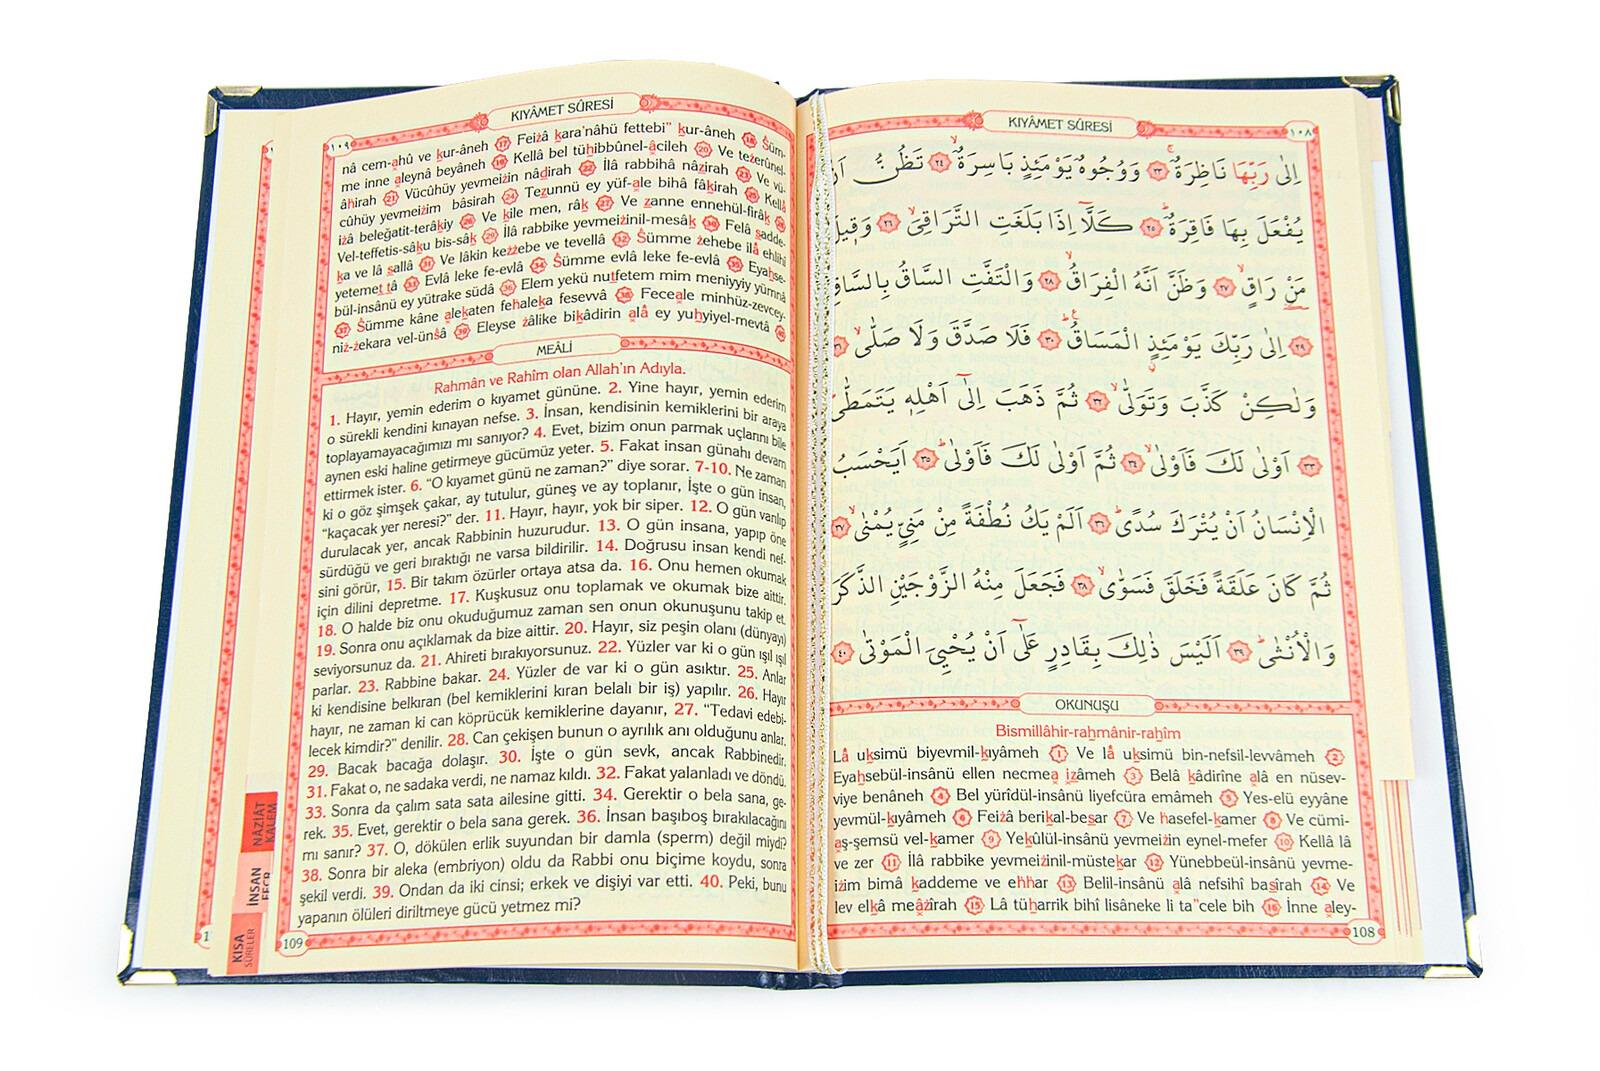 KIYÂMET SÛRESİ
١٠٨
اِلٰى رَبِّهَا نَاظِرَةٌ ٢٣ وَوُجُوهٌ يَوْمَئِذٍ بَاسِرَةٌ ٢٤ تَظُنُّ اَنْ
يُفْعَلَ بِهَا فَاقِرَةٌ ٢٥ كَلَّا اِذَا بَلَغَتِ التَّرَاقِيَ ٢٦ وَقِيلَ
مَنْ رَاقٍ ٢٧ وَظَنَّ اَنَّهُ الْفِرَاقُ ٢٨ وَالْتَفَّتِ السَّاقُ بِالسَّاقِ
٢٩ اِلٰى رَبِّكَ يَوْمَئِذٍ الْمَسَاقُ ٣٠ فَلَا صَدَّقَ وَلَا صَلّٰى ٣١
وَلٰكِنْ كَذَّبَ وَتَوَلّٰى ٣٢ ثُمَّ ذَهَبَ اِلٰٓى اَهْلِهٖ يَتَمَطّٰى
٣٣ اَوْلٰى لَكَ فَاَوْلٰى ٣٤ ثُمَّ اَوْلٰى لَكَ فَاَوْلٰى ٣٥ اَيَحْسَبُ
الْاِنْسَانُ اَنْ يُتْرَكَ سُدًى ٣٦ اَلَمْ يَكُ نُطْفَةً مِنْ مَنِيٍّ يُمْنٰى ٣٧
ثُمَّ كَانَ عَلَقَةً فَخَلَقَ فَسَوّٰى ٣٨ فَجَعَلَ مِنْهُ الزَّوْجَيْنِ الذَّكَرَ
وَالْاُنْثٰى ٣٩ اَلَيْسَ ذٰلِكَ بِقَادِرٍ عَلٰٓى اَنْ يُحْيِيَ الْمَوْتٰى ٤٠
OKUNUŞU
Bismillâhir-rahmânir-rahîm
Lâ uksimü biyevmil-kıyâmeh 1 Ve lâ uksimü bin-nefsil-levvâmeh 2
Eyahsebül-insânü ellen necmea izâmeh 3 Belâ kâdirîne alâ en nüsev-
viye benâneh 4 Bel yürîdül-insânü liyefcüra emâmeh 5 Yes-elü eyyâne
yevmül-kıyâmeh 6 Feizâ berikal-besar 7 Ve hasefel-kamer 8 Ve cümi-
aş-şemsü vel-kamer 9 Yekûlül-insânü yevmeizin eynel-mefer 10 Kellâ lâ
ve zer 11 İlâ rabbike yevmeizinil-müstekar 12 Yünebbeül-insânü yevme-
izim bimâ kaddeme ve ehhar 13 Belil-insânü alâ nefsihî basîrah 14 Ve
lev elkâ meâzîrah 15 Lâ tüharrik bihî lisâneke li ta"cele bih 16 İnne aley-
108
KIYÂMET SÛRESİ
١٠٩
nâ cem-ahû ve kur-âneh 17 Feizâ kara'nâhü fettebi" kur-âneh 18 Süm-
me inne aleynâ beyâneh 19 Kellâ bel tühibbûnel-âcileh 20 Ve tezerûnel-
âhirah 21 Vücûhüy yevmeizin nâdirah 22 İlâ rabbihâ nâzirah 23 Ve vü-
cûhüy yevmeizim bâsirah 24 Tezunnü ey yüf-ale bihâ fâkirah 25 Kellâ
izâ beleğatit-terâkiy 26 Ve kile men, râk 27 Ve zanne ennehül-firâk 28
Vel-teffetis-sâku bis-sâk 29 İlâ rabbike yevmeizinil-mesâk 30 Felâ sadde-
ka ve lâ sallâ 31 Ve lâkin kezzebe ve tevellâ 32 Sümme zehebe ilâ ehlihî
yetemettâ 33 Evlâ leke fe-evlâ 34 Sümme evlâ leke fe-evlâ 35 Eyahse-
bül-insânü ey yütrake südâ 36 Elem yekü nutfetem mim meniyyiy yümnâ
37 Sümme kâne alekaten fehaleka fesevvâ 38 Feceale minhüz-zevcey-
niz-zekara vel-ünsâ 39 Eleyse zâlike bikâdirin alâ ey yuhyiyel-mevtâ 40
MEÂLİ
Rahmân ve Rahîm olan Allah'ın Adıyla.
1. Hayır, yemin ederim o kıyamet gününe. 2. Yine hayır, yemin ederim
o sürekli kendini kınayan nefse. 3. İnsan, kendisinin kemiklerini bir araya
toplayamayacağımızı mı sanıyor? 4. Evet, bizim onun parmak uçlarını bile
aynen eski haline getirmeye gücümüz yeter. 5. Fakat insan günahı devam
ettirmek ister. 6. "O kıyamet günü ne zaman?" diye sorar. 7-10. Ne zaman
ki o göz şimşek çakar, ay tutulur, güneş ve ay toplanır, İşte o gün insan,
"kaçacak yer neresi?" der. 11. Hayır, hayır, yok bir siper. 12. O gün varılıp
durulacak yer, ancak Rabbinin huzurudur. 13. O gün insana, yapıp öne
sürdüğü ve geri bıraktığı ne varsa bildirilir. 14. Doğrusu insan kendi nef-
sini görür, 15. Bir takım özürler ortaya atsa da. 16. Onu hemen okumak
için dilini depretme. 17. Kuşkusuz onu toplamak ve okumak bize aittir.
18. O halde biz onu okuduğumuz zaman sen onun okunuşunu takip et.
19. Sonra onu açıklamak da bize aittir. 20. Hayır, siz peşin olanı (dünyayı)
seviyorsunuz da. 21. Ahireti bırakıyorsunuz. 22. Yüzler var ki o gün ışıl ışıl
parlar. 23. Rabbine bakar. 24. Yüzler de var ki o gün asıktır. 25. Anlar
ki kendisine belkıran (bel kemiklerini kıran belalı bir iş) yapılır. 26. Hayır
hayır, ne zaman ki can köprücük kemiklerine dayanır, 27. "Tedavi edebi-
lecek kimdir?" denilir. 28. Can çekişen bunun o ayrılık anı olduğunu anlar.
29. Bacak bacağa dolaşır. 30. İşte o gün sevk, ancak Rabbinedir.
31. Fakat o, ne sadaka verdi, ne namaz kıldı. 32. Fakat yalanladı ve döndü.
33. Sonra da çalım sata sata ailesine gitti. 34. Gerektir o bela sana, ge-
rek. 35. Evet, gerektir o bela sana gerek. 36. İnsan başıboş bırakılacağını
mı sanır? 37. O, dökülen erlik suyundan bir damla (sperm) değil miydi?
38. Sonra bir aleka (embriyon) oldu da Rabbi onu biçime koydu, sonra
şekil verdi. 39. Ondan da iki cinsi; erkek ve dişiyi var etti. 40. Peki, bunu
yapanın ölüleri diriltmeye gücü yetmez mi?
109
NÂZİÂT
KALEM
İNSAN
FECR
KISA
SÛRELER